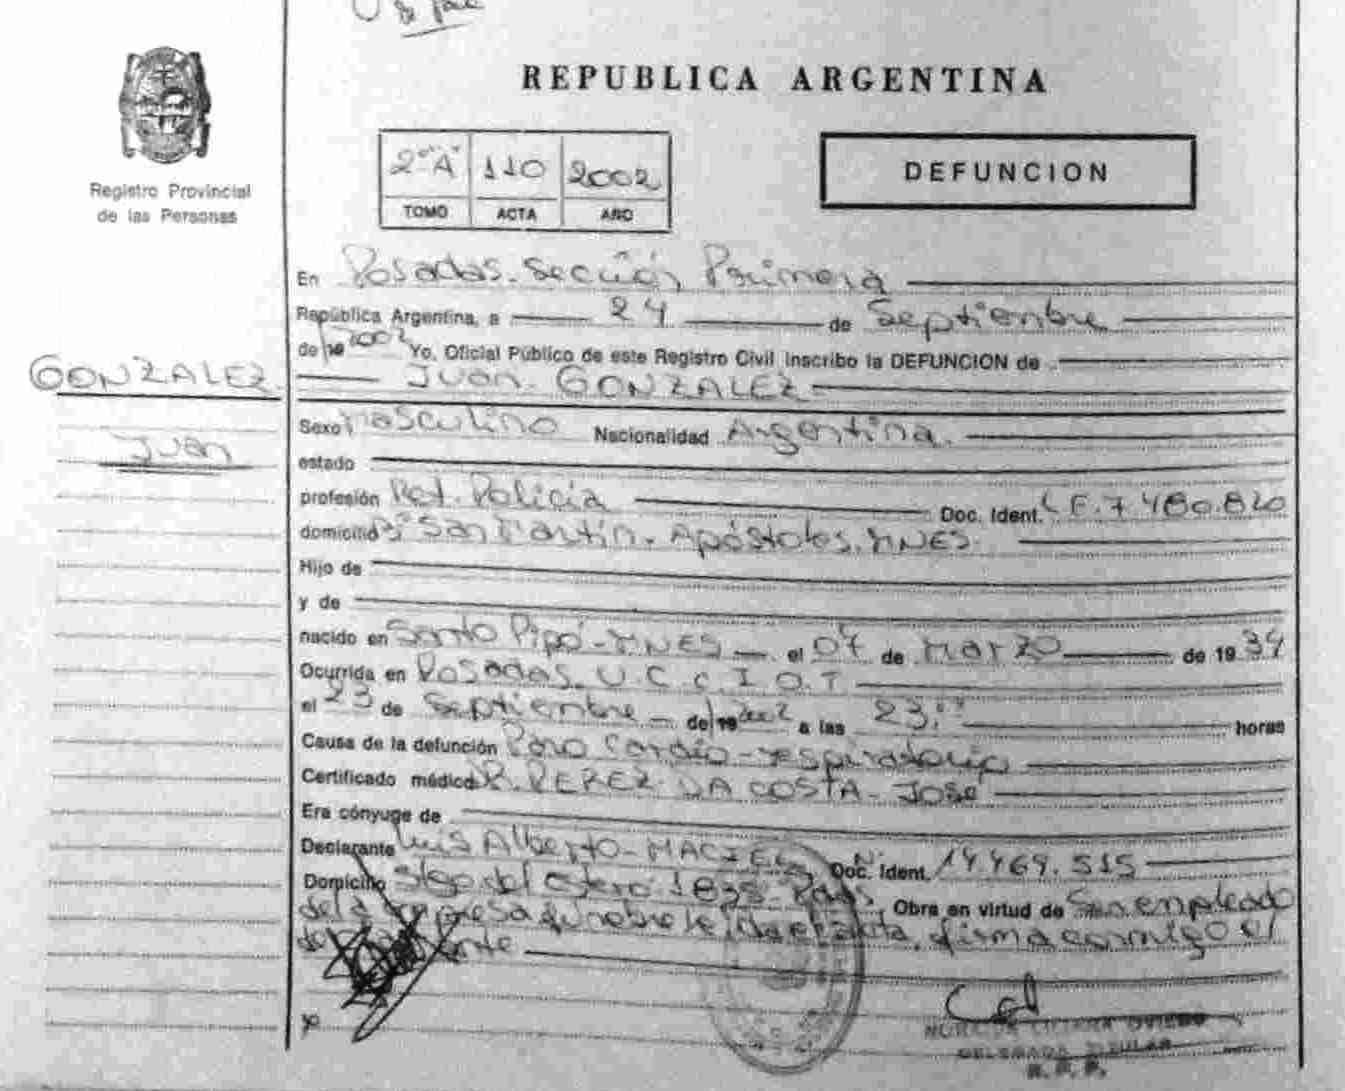 REPUBLICA ARGENTINA
Registro Provincial
de las Personas
2º "A" 110 2002
TOMO ACTA AÑO
DEFUNCION
En Posadas. Sección Primera
República Argentina, a 24 de Septiembre
de 19 2002 Yo, Oficial Público de este Registro Civil inscribo la DEFUNCION de
GONZALEZ
Juan
Juan GONZALEZ
Sexo masculino Nacionalidad Argentina.
estado
profesión Ret. Policía Doc. Ident. L E. 7 480.820
domicilio Bº San Martín. Apóstoles. MNES.
Hijo de
y de
nacido en Santo Pipó - MNES el 07 de Marzo de 19 34
Ocurrida en Posadas. U. C c. I. O. T
el 23 de Septiembre de 19 2002 a las 23, horas
Causa de la defunción Paro cardio-respiratorio
Certificado médico DR. PEREZ DA COSTA - José
Era cónyuge de
Declarante Luis Alberto MACIEL Doc. Ident. Nº 14.469.515
Domicilio Stgo del Estero 1835 - Pdas. Obra en virtud de Ser empleado
de la empresa fúnebre leída el acta, firma conmigo el
DELEGADA TITULAR
R. P. P.